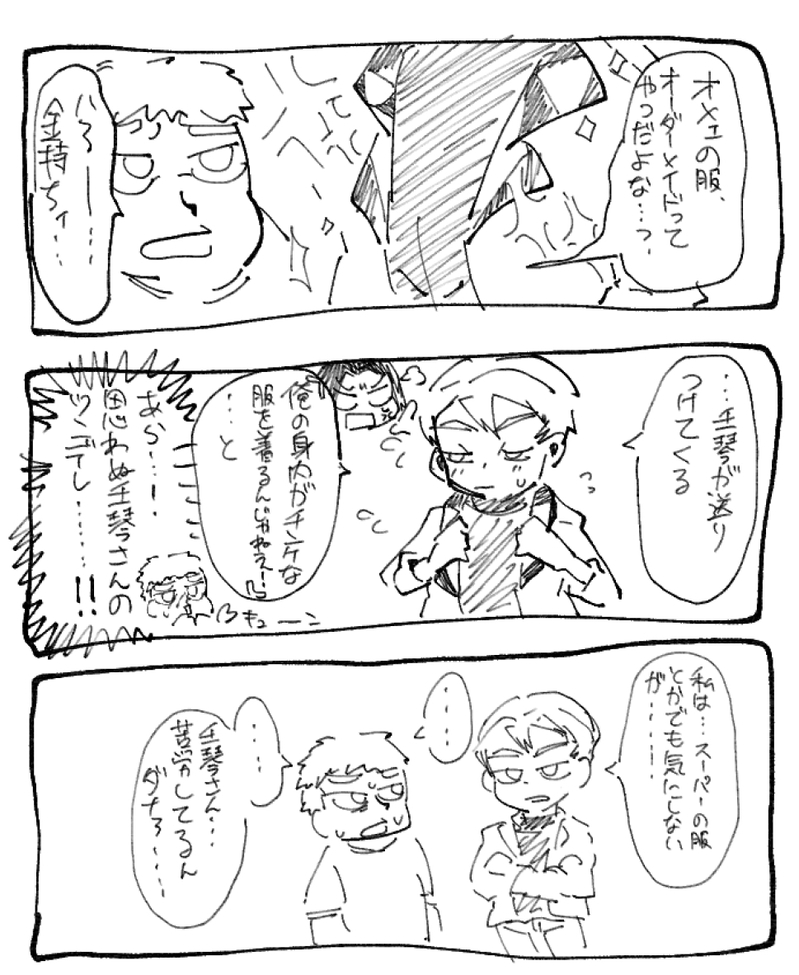 オメェの服、
オーダーメイドって
やつだよな…っ
いろー…
金持ちィ…
…壬琴が送り
つけてくる
俺の身内がチンケな
服を着るんじゃねえ!
…と
あら…!
思わぬ壬琴さんの
ツンデレ……!!
キューン
私は…スーパーの服
とかでも気にしない
が……!
…
…
壬琴さん…
苦労してるん
ダナろ……